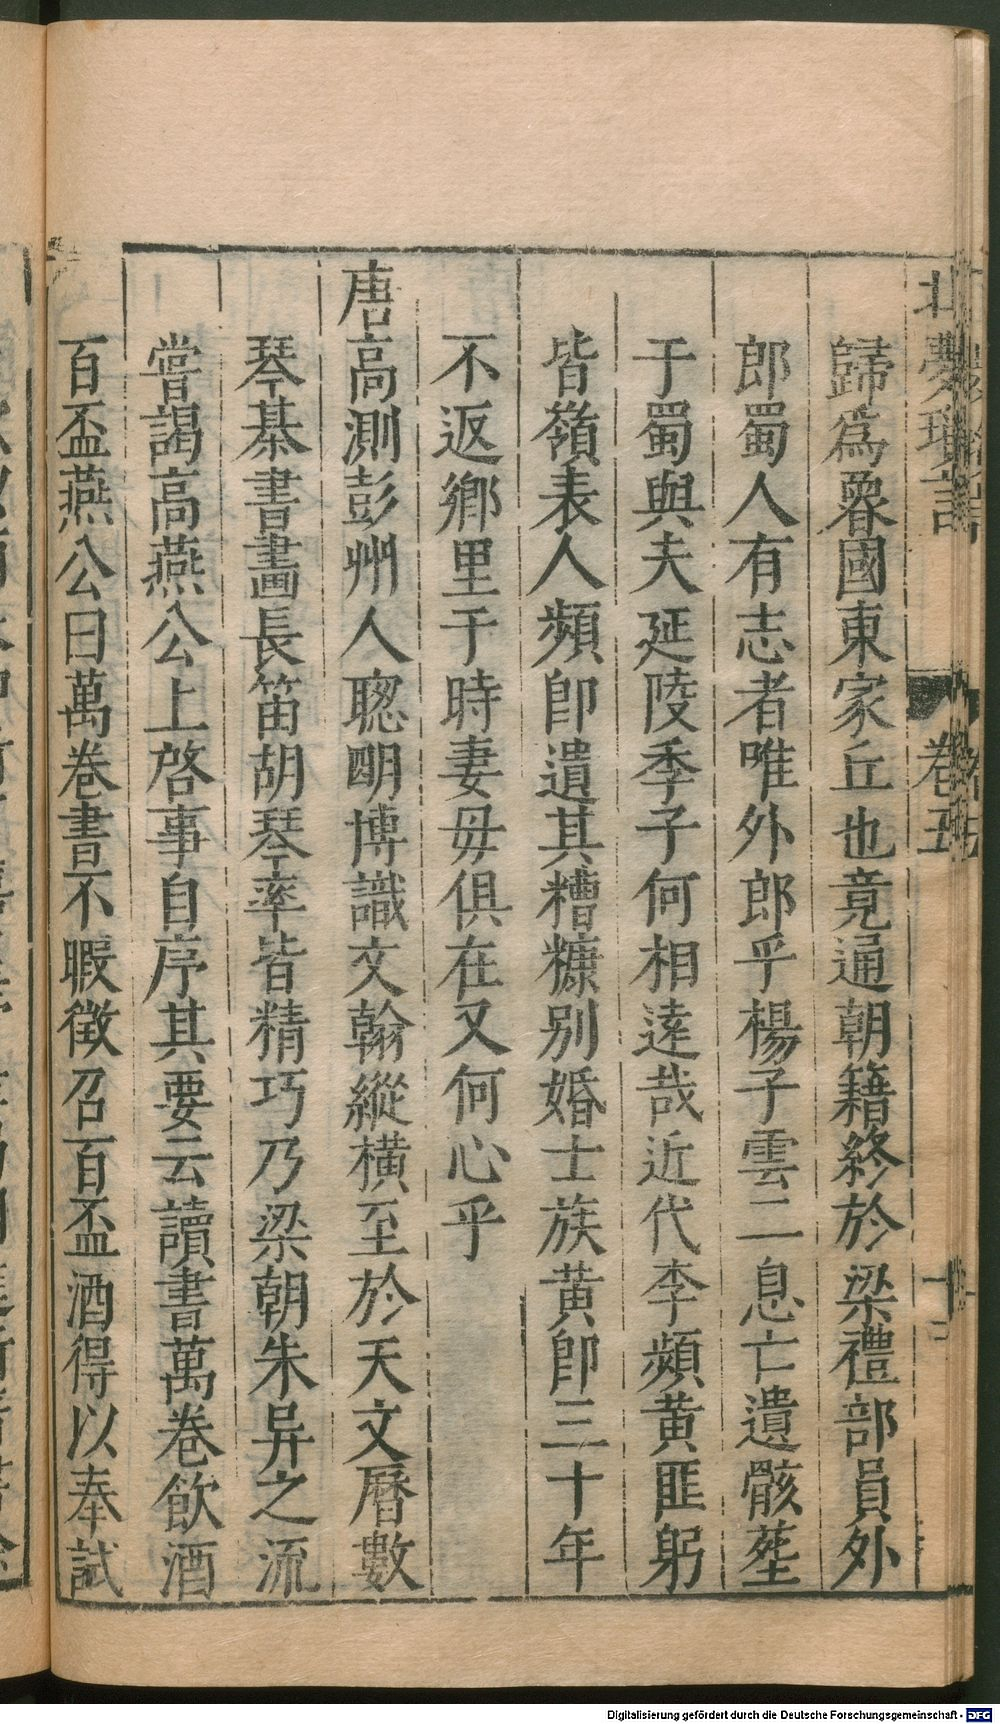 北夢瑣言 卷五 十二
歸爲魯國東家丘也竟通朝籍終於梁禮部員外
郎蜀人有志者唯外郎乎楊子雲二息亡遺骸塟
于蜀與夫延陵季子何相逺哉近代李頻黄匪躬
皆嶺表人頻即遺其糟糠别婚士族黄即三十年
不返鄉里于時妻毋俱在又何心乎
唐高測彭州人聦明博識文翰縱橫至於天文曆數
琴棊書畫長笛胡琴率皆精巧乃梁朝朱异之流
嘗謁高燕公上啓事自序其要云讀書萬卷飲酒
百盃燕公曰萬巻書不暇徴召百盃酒得以奉試
Digitalisierung gefördert durch die Deutsche Forschungsgemeinschaft - DFG